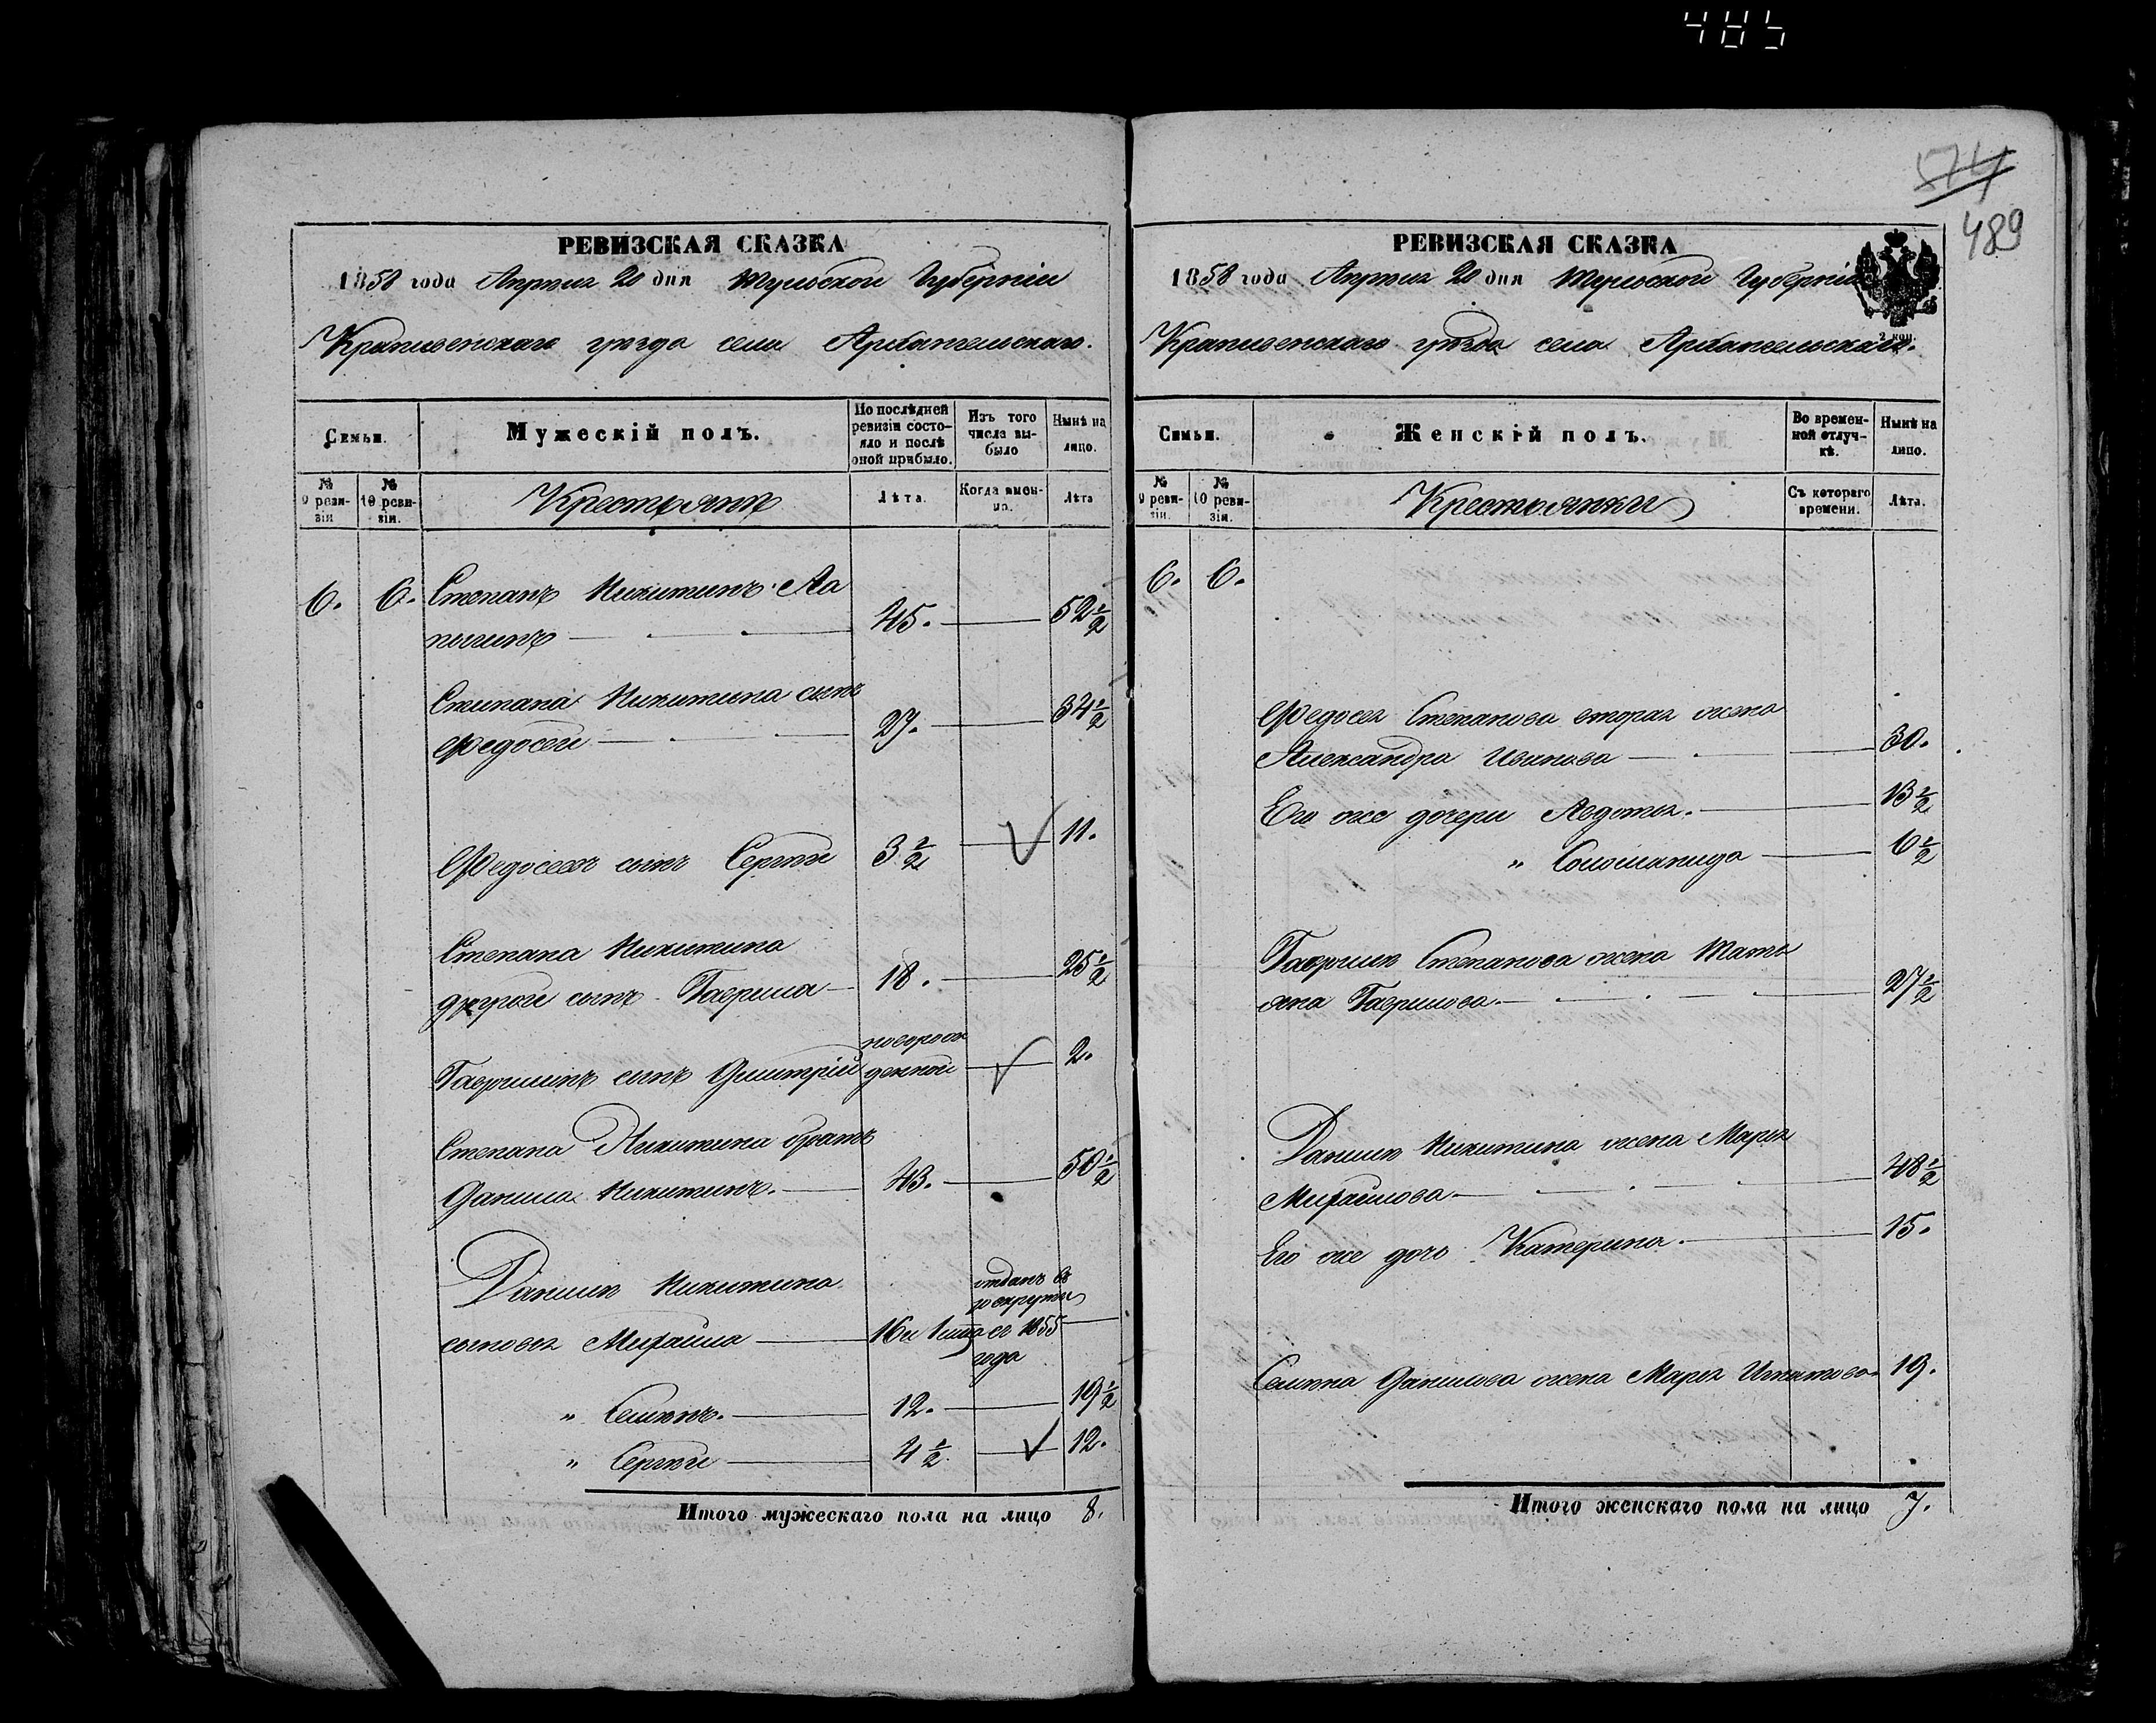 485
574
489
РЕВИЗСКАЯ СКАЗКА
1858 года Апреля 20 дня Тульской Губерніи
Крапивенскаго уѣзда села Архангельскаго.
Семьи.
Мужескій полъ.
По послѣдней ревизіи состояло и послѣ оной прибыло.
Изъ того числа выбыло
Нынѣ на лицо.
№ 9 ревизіи
№ 10 ревизіи.
Крестьяне
Лѣта.
Когда именно.
Лѣта
6. 6. Степанъ Никитинъ Ла
пыгинъ 45. 52½
Степана Никитина сынъ
Федосей 27. 34½
Федосеевъ сынъ Сергѣй 3½ 11.
Степана Никитина
другой сынъ Гаврила 18. 25½
новорож
Гаврилинъ сынъ Дмитрій денной 2.
Степана Никитина братъ
Данила Никитинъ. 43. 50½
Данилы Никитина отданъ въ
рекруты
сыновья Михайла 16 и 1855
года
" Семенъ. 12. 19½
" Сергѣй 4½ 12.
Итого мужескаго пола на лицо 8.
РЕВИЗСКАЯ СКАЗКА
1858 года Апреля 20 дня Тульской Губерніи
2 коп.
Крапивенскаго уѣзда села Архангельскаго.
Семьи.
Женскій полъ.
Во временной отлучкѣ.
Нынѣ на лицо.
№ 9 ревизіи.
№ 10 ревизіи.
Крестьянки
Съ котораго времени.
Лѣта.
6. 6.
Федосея Степанова вторая жена
Александра Иванова 30.
Его же дочери Авдотья. 13½
" Соломанида 6½
Гаврилы Степанова жена Тать
яна Гаврилова. 27½
Данилы Никитина жена Марья
Михайлова 48½
Его же дочь Катерина. 15.
Семена Данилова жена Марья Игнатова 19.
Итого женскаго пола на лицо 7.